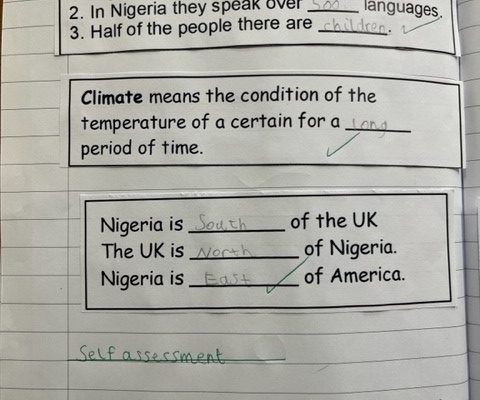 2. In Nigeria they speak over 500 languages.
3. Half of the people there are children.
Climate means the condition of the
temperature of a certain for a long
period of time.
Nigeria is South of the UK
The UK is North of Nigeria.
Nigeria is East of America.
Self assessment